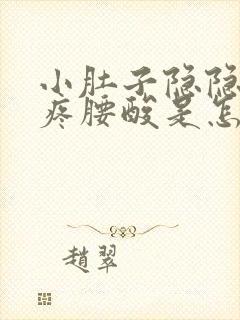 小肚子隐隐
疼腰酸是怎
趙翠